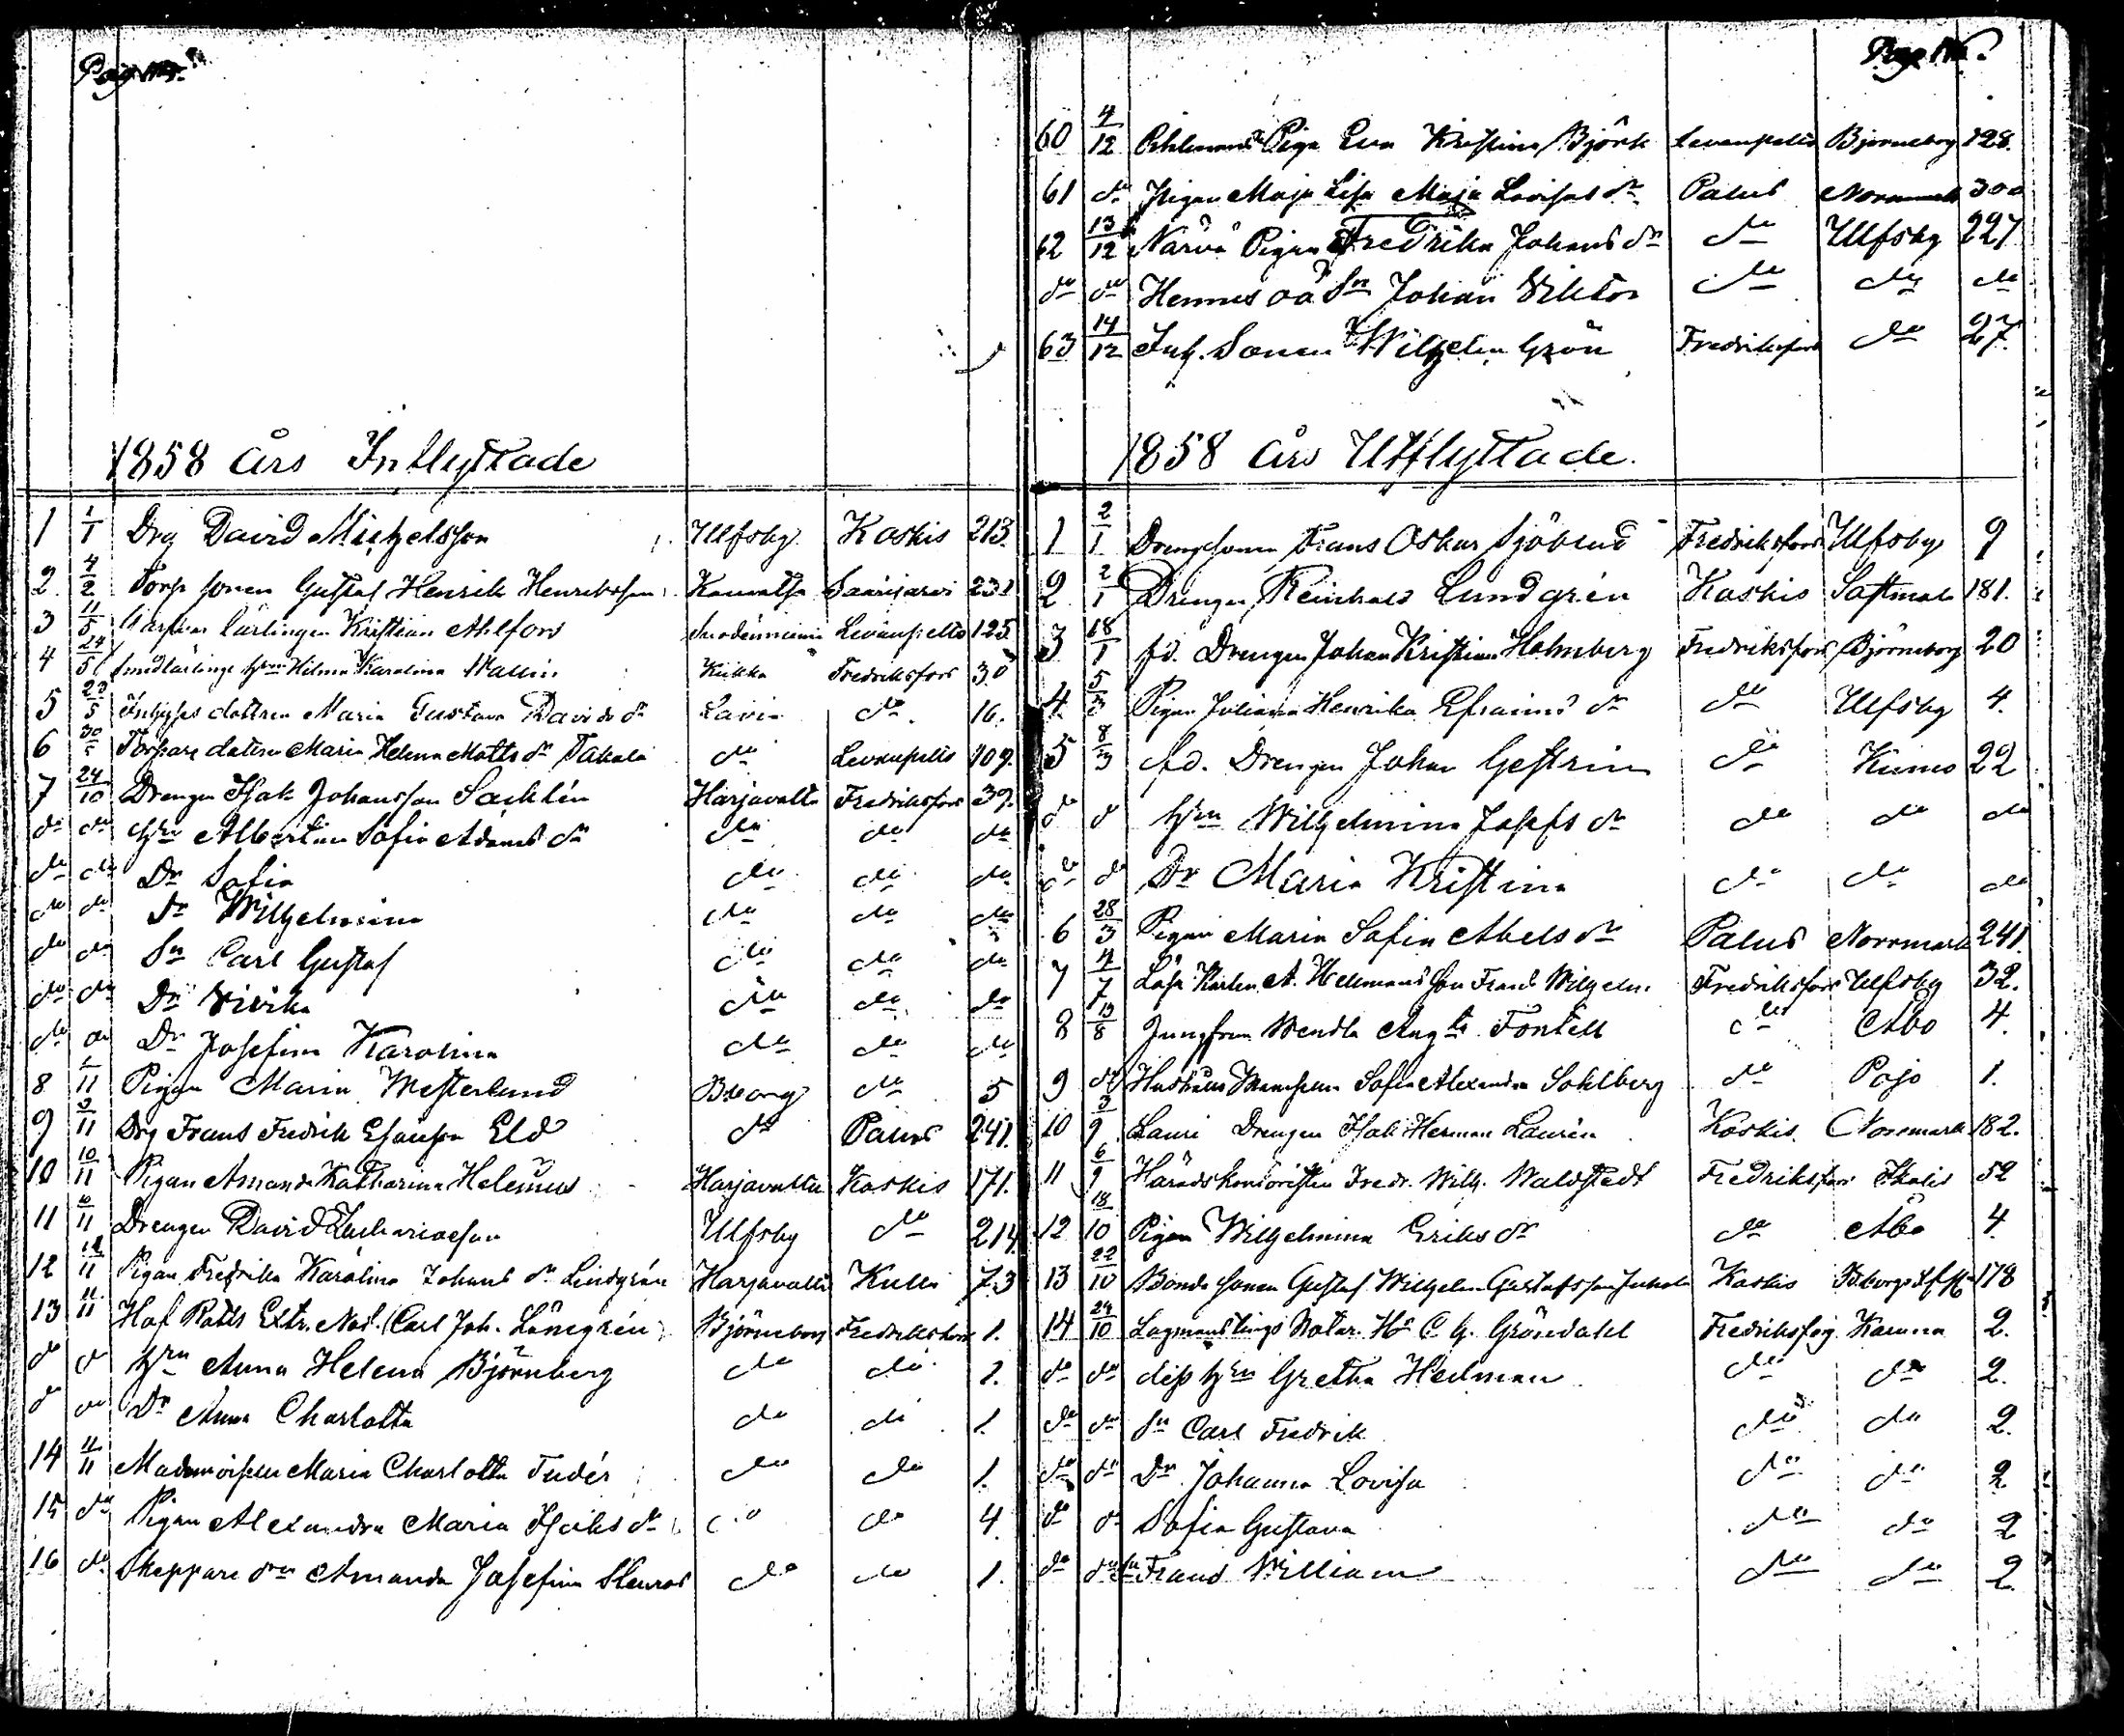 Pag N:o
1858 års Inflyttade
1 1/1 Drg David Michelsson Ulfsby Koskis 213.
2. 4/2 Torp sonen Gustaf Henrik Henriksson Saarijärvi 231
3 11/5 lärlingen Kristian Ahlfors Suodenniemi Levanpelto 125.
4 24/5 smedlärlings h:un Helena Karolina Wallin Kiikka Fredriksfors 30
5 29/5 Inhyses dottren Maria Gustava Davids dr Lavia do 16.
6 30/5 Torpare dottren Maria Helena Matts dr Takala do Levanpelto 109.
7 24/10 Drengen Isak Johansson Sacklén Harjavalta Fredriksfors 39.
do do h:un Albertina Sofia Adams dr do do do
do do Dr Sofia do do do
do do dr Wilhelmina do do do
do do Sn Carl Gustaf do do do
do do Dr Vivika do do do
do do Dr Josefina Karolina do do do
8 /11 Pigan Maria Westerlund Bborg do 5
9 9/11 Drg Frans Fredrik Esaisson Eld do Palus 241.
10 10/11 Pigan Amanda Katharina Helenius Harjavalta Koskis 171.
11 /11 Drengen David Zachariasson Ulfsby do 214
12 11/11 Pigan Fredrika Karolina Johans dr Lindgrén Harjavalta Kulla 73
13 11/11 Hof Rätts Extr. Not. Carl Joh. Lönegrén Björneborg Fredriksfors 1.
do do h:un Anna Helena Björnberg do do 1.
do do Dr Anna Charlotta do do 1.
14 11/11 Mademoiselle Maria Charlotta Tudér do do 1.
15 do Pigan Alexandra Maria Isaks dr do do 4.
16 do Skeppare drn Amanda Josefina Stenros do do 1.
Pag N:o
60 4/12 Pigan Eva Kristina Björk Levanpelto Björneborg 128.
61 do Pigan Maja Lisa Maja Lovisas dr Palus Norrmark 300
62 13/12 Närvä Pigan Fredrika Johans dr do Ulfsby 227
do do Hennes oä Sn Johan Viktor do do do
63 14/12 Inh. Sonen Wilhelm Grön Fredriksfors do 27.
1858 års Utflyttade.
1 2/1 Drengsonen Frans Oskar Sjöblad Fredriksfors Ulfsby 9
2 2/1 Drengen Reinhold Lundgrén Koskis Sastmola 181.
3 18/1 fd. Drengen Johan Kristian Holmberg Fredriksfors Björneborg 20
4 5/3 Pigan Juliana Henrika Efraims dr do Ulfsby 4.
5 8/3 fd. Drengen Johan Gestrin do Kumo 22
do do h:un Wilhelmina Josefs dr do do do
do do Dr Maria Kristina do do do
6 28/3 Pigan Maria Sofia Abels dr Palus Norrmark 241.
7 4/7 A. Hellmans son Frans Wilhelm. Fredriksfors Ulfsby 32.
8 13/8 Jungfrun Wendla Aug:ta Fontell do Åbo 4.
9 do Hushålls Mamsellen Sofia Alexandra Sohlberg do Pojo 1.
10 3/9 Lauri Drengen Isak Herman Laurén Koskis. Norrmark 182.
11 6/9 Häradskontoristen Fredr. Wilh. Waldstedt Fredriksfors Ikalis 52
12 18/10 Pigan Wilhelmina Eriks dr do Åbo 4.
13 22/10 Bonde sonen Gustaf Wilhelm Gustafsson Juhola Koskis 178
14 24/10 Lagmanstings Notar. H:r C. G. Gröndahl Fredriksfors Karuna 2.
do do dess h:un Gretha Hedman do do 2.
do do Sn Carl Fredrik do do 2.
do do Dr Johanna Lovisa do do 2
do do Sofia Gustava do do 2
do do Sn Frans William do do 2.